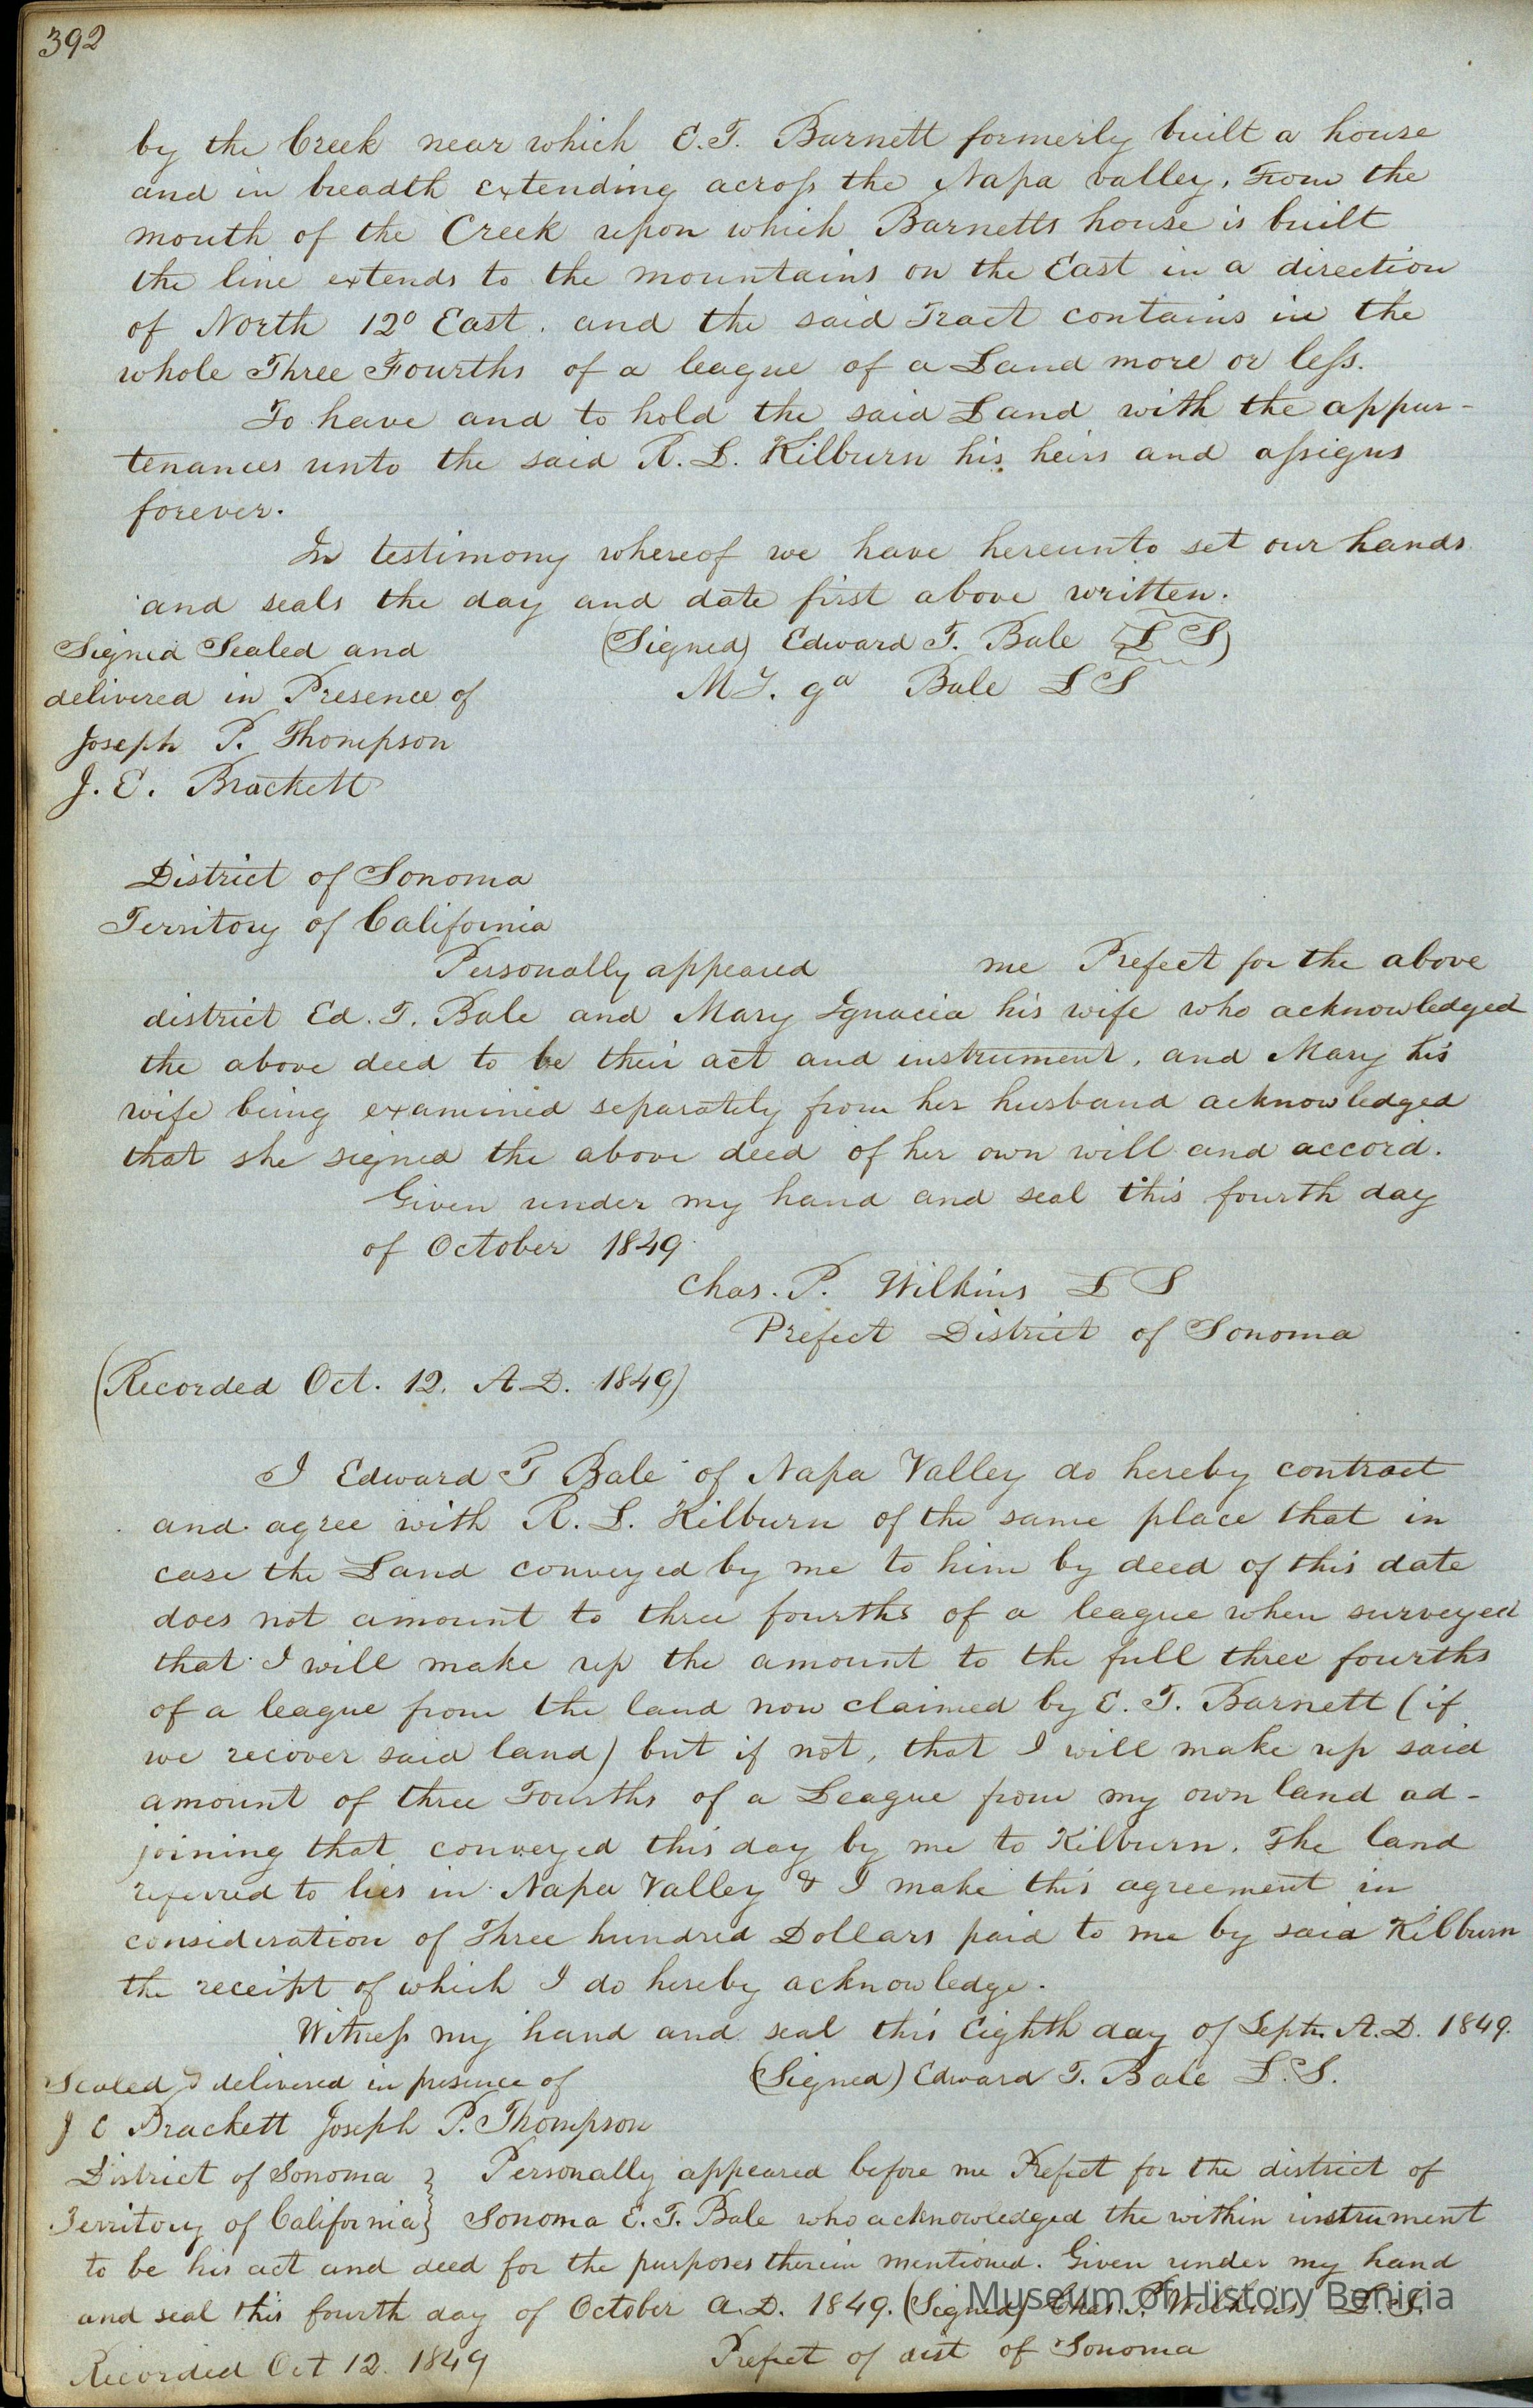 392
by the Creek near which E. T. Barnett formerly built a house
and in breadth extending across the Napa valley. From the
mouth of the Creek upon which Barnetts house is built
the line extends to the mountains on the East in a direction
of North 12° East. and the said Tract contains in the
whole Three Fourths of a league of a Land more or less.
To have and to hold the said Land with the appur-
tenances unto the said R. L. Kilburn his heirs and assigns
forever.
In testimony whereof we have hereunto set our hands
and seals the day and date first above written.
Signed Sealed and (Signed) Edward T. Bale (L S)
delivered in Presence of M Y. ga Bale L S
Joseph P. Thompson
J. E. Brackett
District of Sonoma
Territory of California
Personally appeared me Prefect for the above
district Ed. T. Bale and Mary Ignacia his wife who acknowledged
the above deed to be their act and instrument, and Mary his
wife being examined separately from her husband acknowledged
that she signed the above deed of her own will and accord.
Given under my hand and seal this fourth day
of October 1849
Chas. P. Wilkins L S
Prefect District of Sonoma
(Recorded Oct. 12. A.D. 1849)
I Edward T Bale of Napa Valley do hereby contract
and agree with R. L. Kilburn of the same place that in
case the Land conveyed by me to him by deed of this date
does not amount to three fourths of a league when surveyed
that I will make up the amount to the full three fourths
of a league from the land now claimed by E. T. Barnett (if
we recover said land) but if not, that I will make up said
amount of three Fourths of a League from my own land ad-
joining that conveyed this day by me to Kilburn. The land
referred to lies in Napa Valley & I make this agreement in
consideration of Three hundred Dollars paid to me by said Kilburn
the receipt of which I do hereby acknowledge.
Witness my hand and seal this Eighth day of Sept. A.D. 1849.
Sealed & delivered in presence of (Signed) Edward T. Bale L.S.
J E Brackett Joseph P. Thompson
District of Sonoma } Personally appeared before me Prefect for the district of
Territory of California } Sonoma E. T. Bale who acknowledged the within instrument
to be his act and deed for the purposes therein mentioned. Given under my hand
and seal this fourth day of October A.D. 1849. (Signed) Chas. P. Wilkins L.S.
Recorded Oct 12. 1849 Prefect of dist of Sonoma
Museum of History Benicia